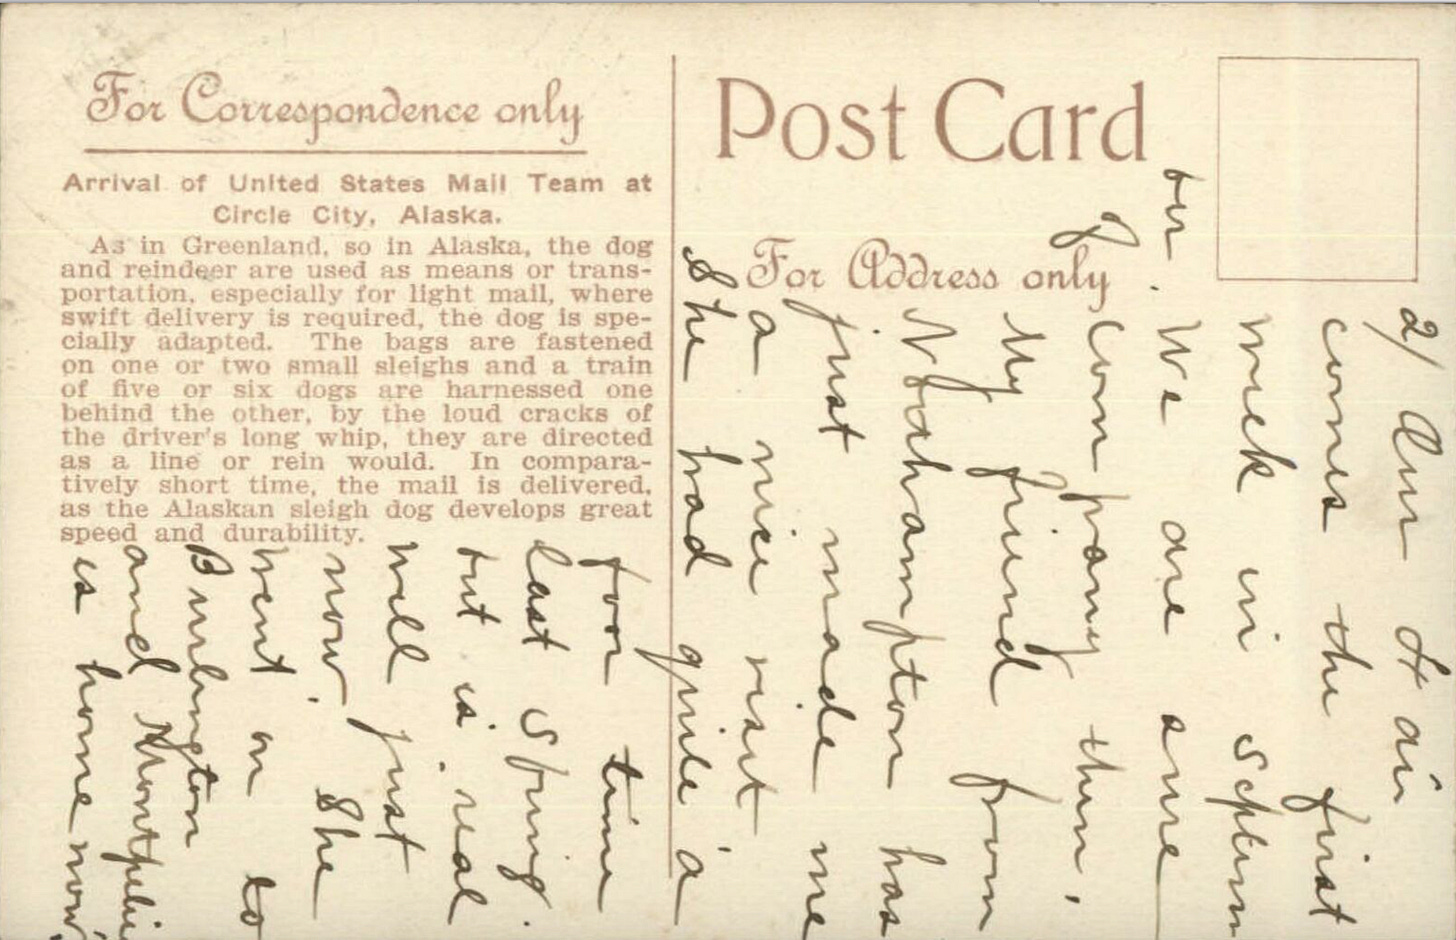 For Correspondence only
Arrival of United States Mail Team at
Circle City, Alaska.
As in Greenland, so in Alaska, the dog
and reindeer are used as means or trans-
portation, especially for light mail, where
swift delivery is required, the dog is spe-
cially adapted. The bags are fastened
on one or two small sleighs and a train
of five or six dogs are harnessed one
behind the other, by the loud cracks of
the driver's long whip, they are directed
as a line or rein would. In compara-
tively short time, the mail is delivered,
as the Alaskan sleigh dog develops great
speed and durability.
Post Card
For Address only
2/ Our Fair
comes the first
week in Septem
ber. We are sure
of Company then.
My friend from
Northampton has
just made me
a nice visit.
She had quite a
poor time
last Spring.
but is real
well just
now. She
went on to
Burlington
and Montpelier
is home now.